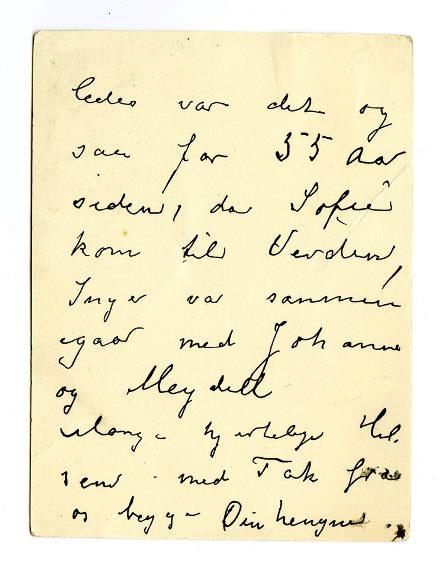 ledes var det og
saa for 55 Aar
siden, da Sofie
kom til Verden,
Inger var sammen
igaar med Johanne
og Meydell
Mange hjertelige Hil-
sener med Tak fra
os begge Din hengivne